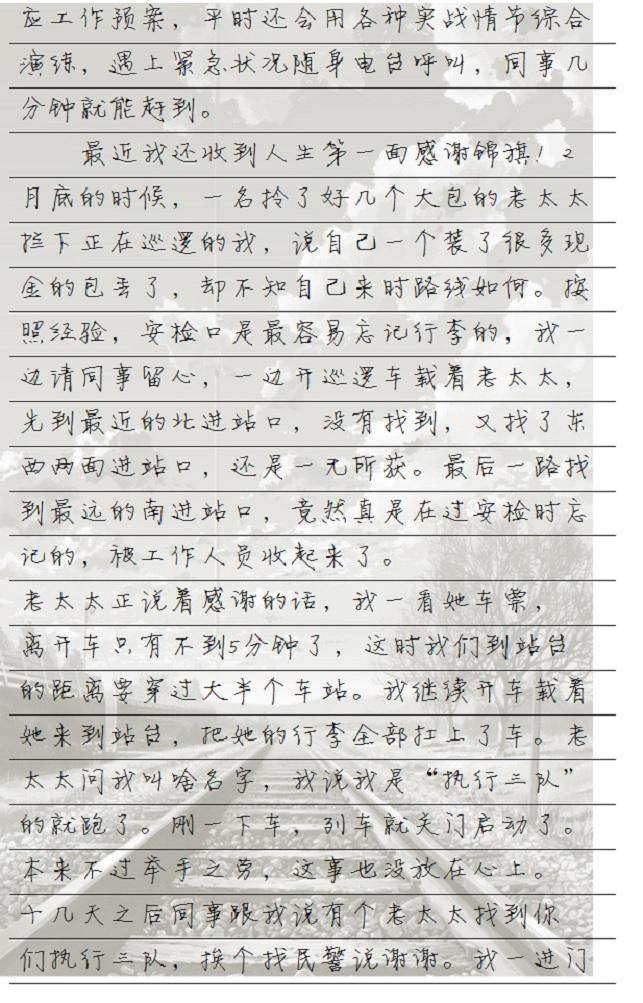 应工作预案，平时还会用各种实战情节综合
演练，遇上紧急状况随身电台呼叫，同事几
分钟就能赶到。
最近我还收到人生第一面感谢锦旗！2
月底的时候，一名拎了好几个大包的老太太
拦下正在巡逻的我，说自己一个装了很多现
金的包丢了，却不知自己来时路线如何。按
照经验，安检口是最容易忘记行李的，我一
边请同事留心，一边开巡逻车载着老太太，
先到最近的北进站口，没有找到，又找了东
西两面进站口，还是一无所获。最后一路找
到最远的南进站口，竟然真是在过安检时忘
记的，被工作人员收起来了。
老太太正说着感谢的话，我一看她车票，
离开车只有不到5分钟了，这时我们到站台
的距离要穿过大半个车站。我继续开车载着
她来到站台，把她的行李全部扛上了车。老
太太问我叫啥名字，我说我是“执行三队”
的就跑了。刚一下车，列车就关门启动了。
本来不过举手之劳，这事也没放在心上。
十几天之后同事跟我说有个老太太找到你
们执行三队，挨个找民警说谢谢。我一进门